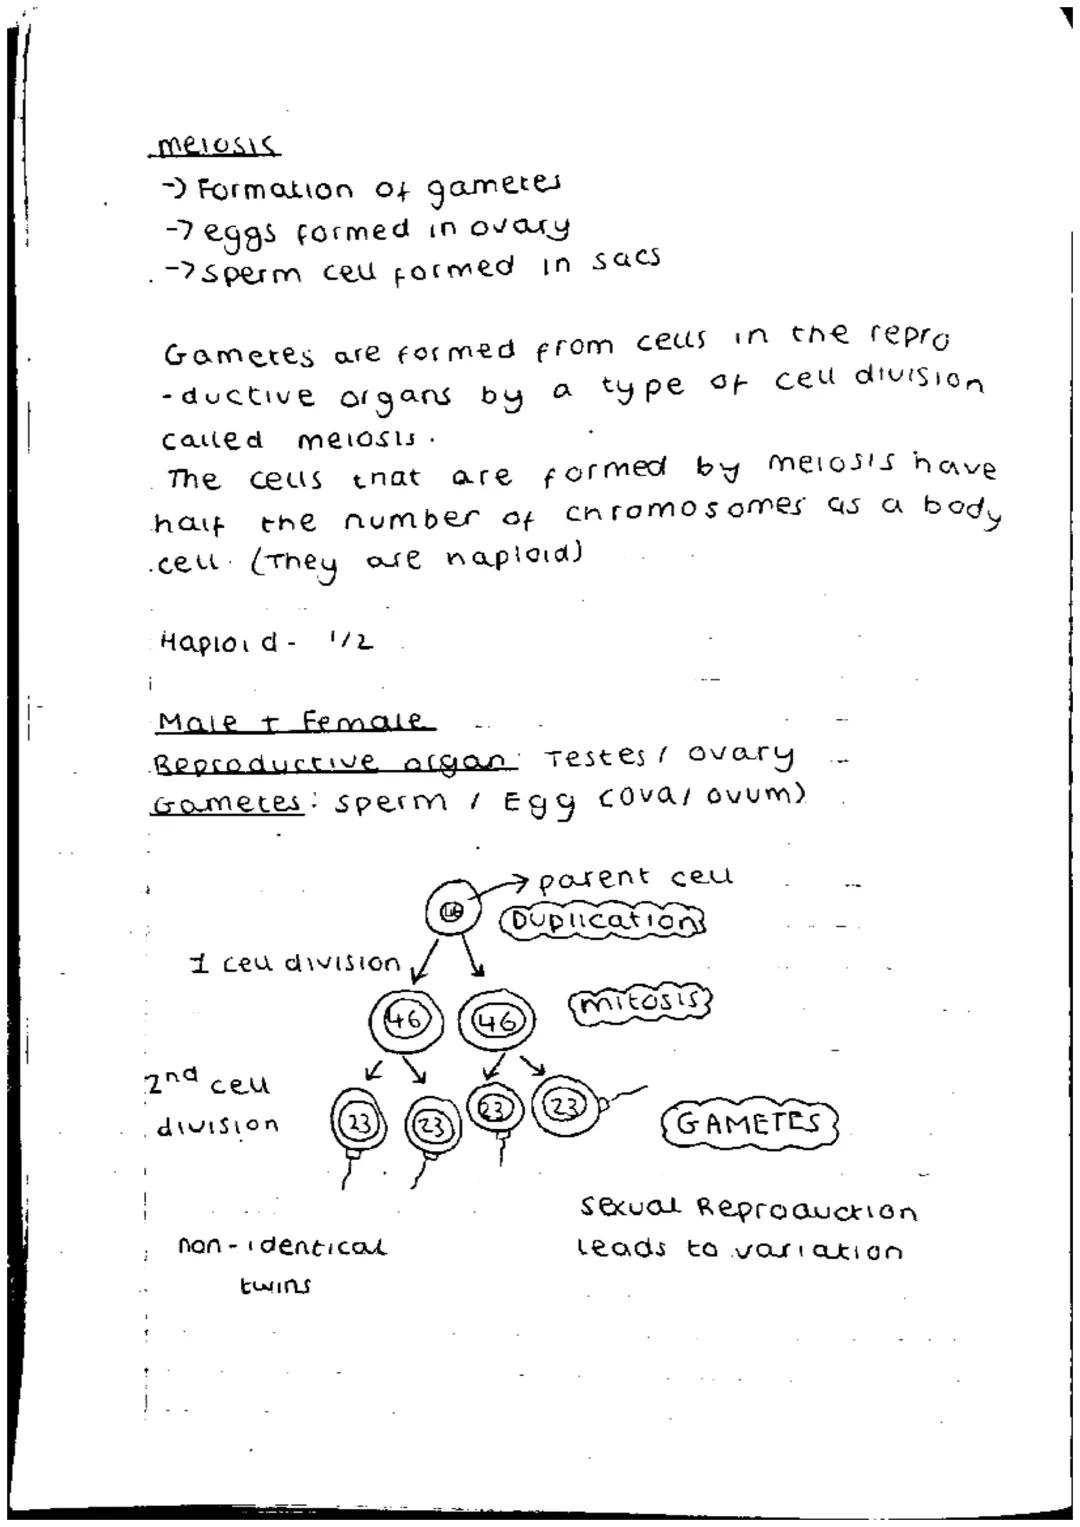 meiosis
-> Formation of gametes
-> eggs formed in ovary
-> sperm cell formed in sacs
Gametes are formed from cells in the repro
-ductive organs by a type of cell division
called meiosis.
The cells that are formed by meiosis have
half the number of chromosomes as a body
cell. (They are haploid)
Haploid - 1/2
Male + Female
Reproductive organ: Testes / ovary
Gametes: sperm / Egg (ova/ ovum)
-> parent cell
46
DUPlication
1 cell division
46 46
mitosis
2nd cell
division
23 23 23 23
GAMETES
Sexual Reproduction
leads to variation
non-identical
twins